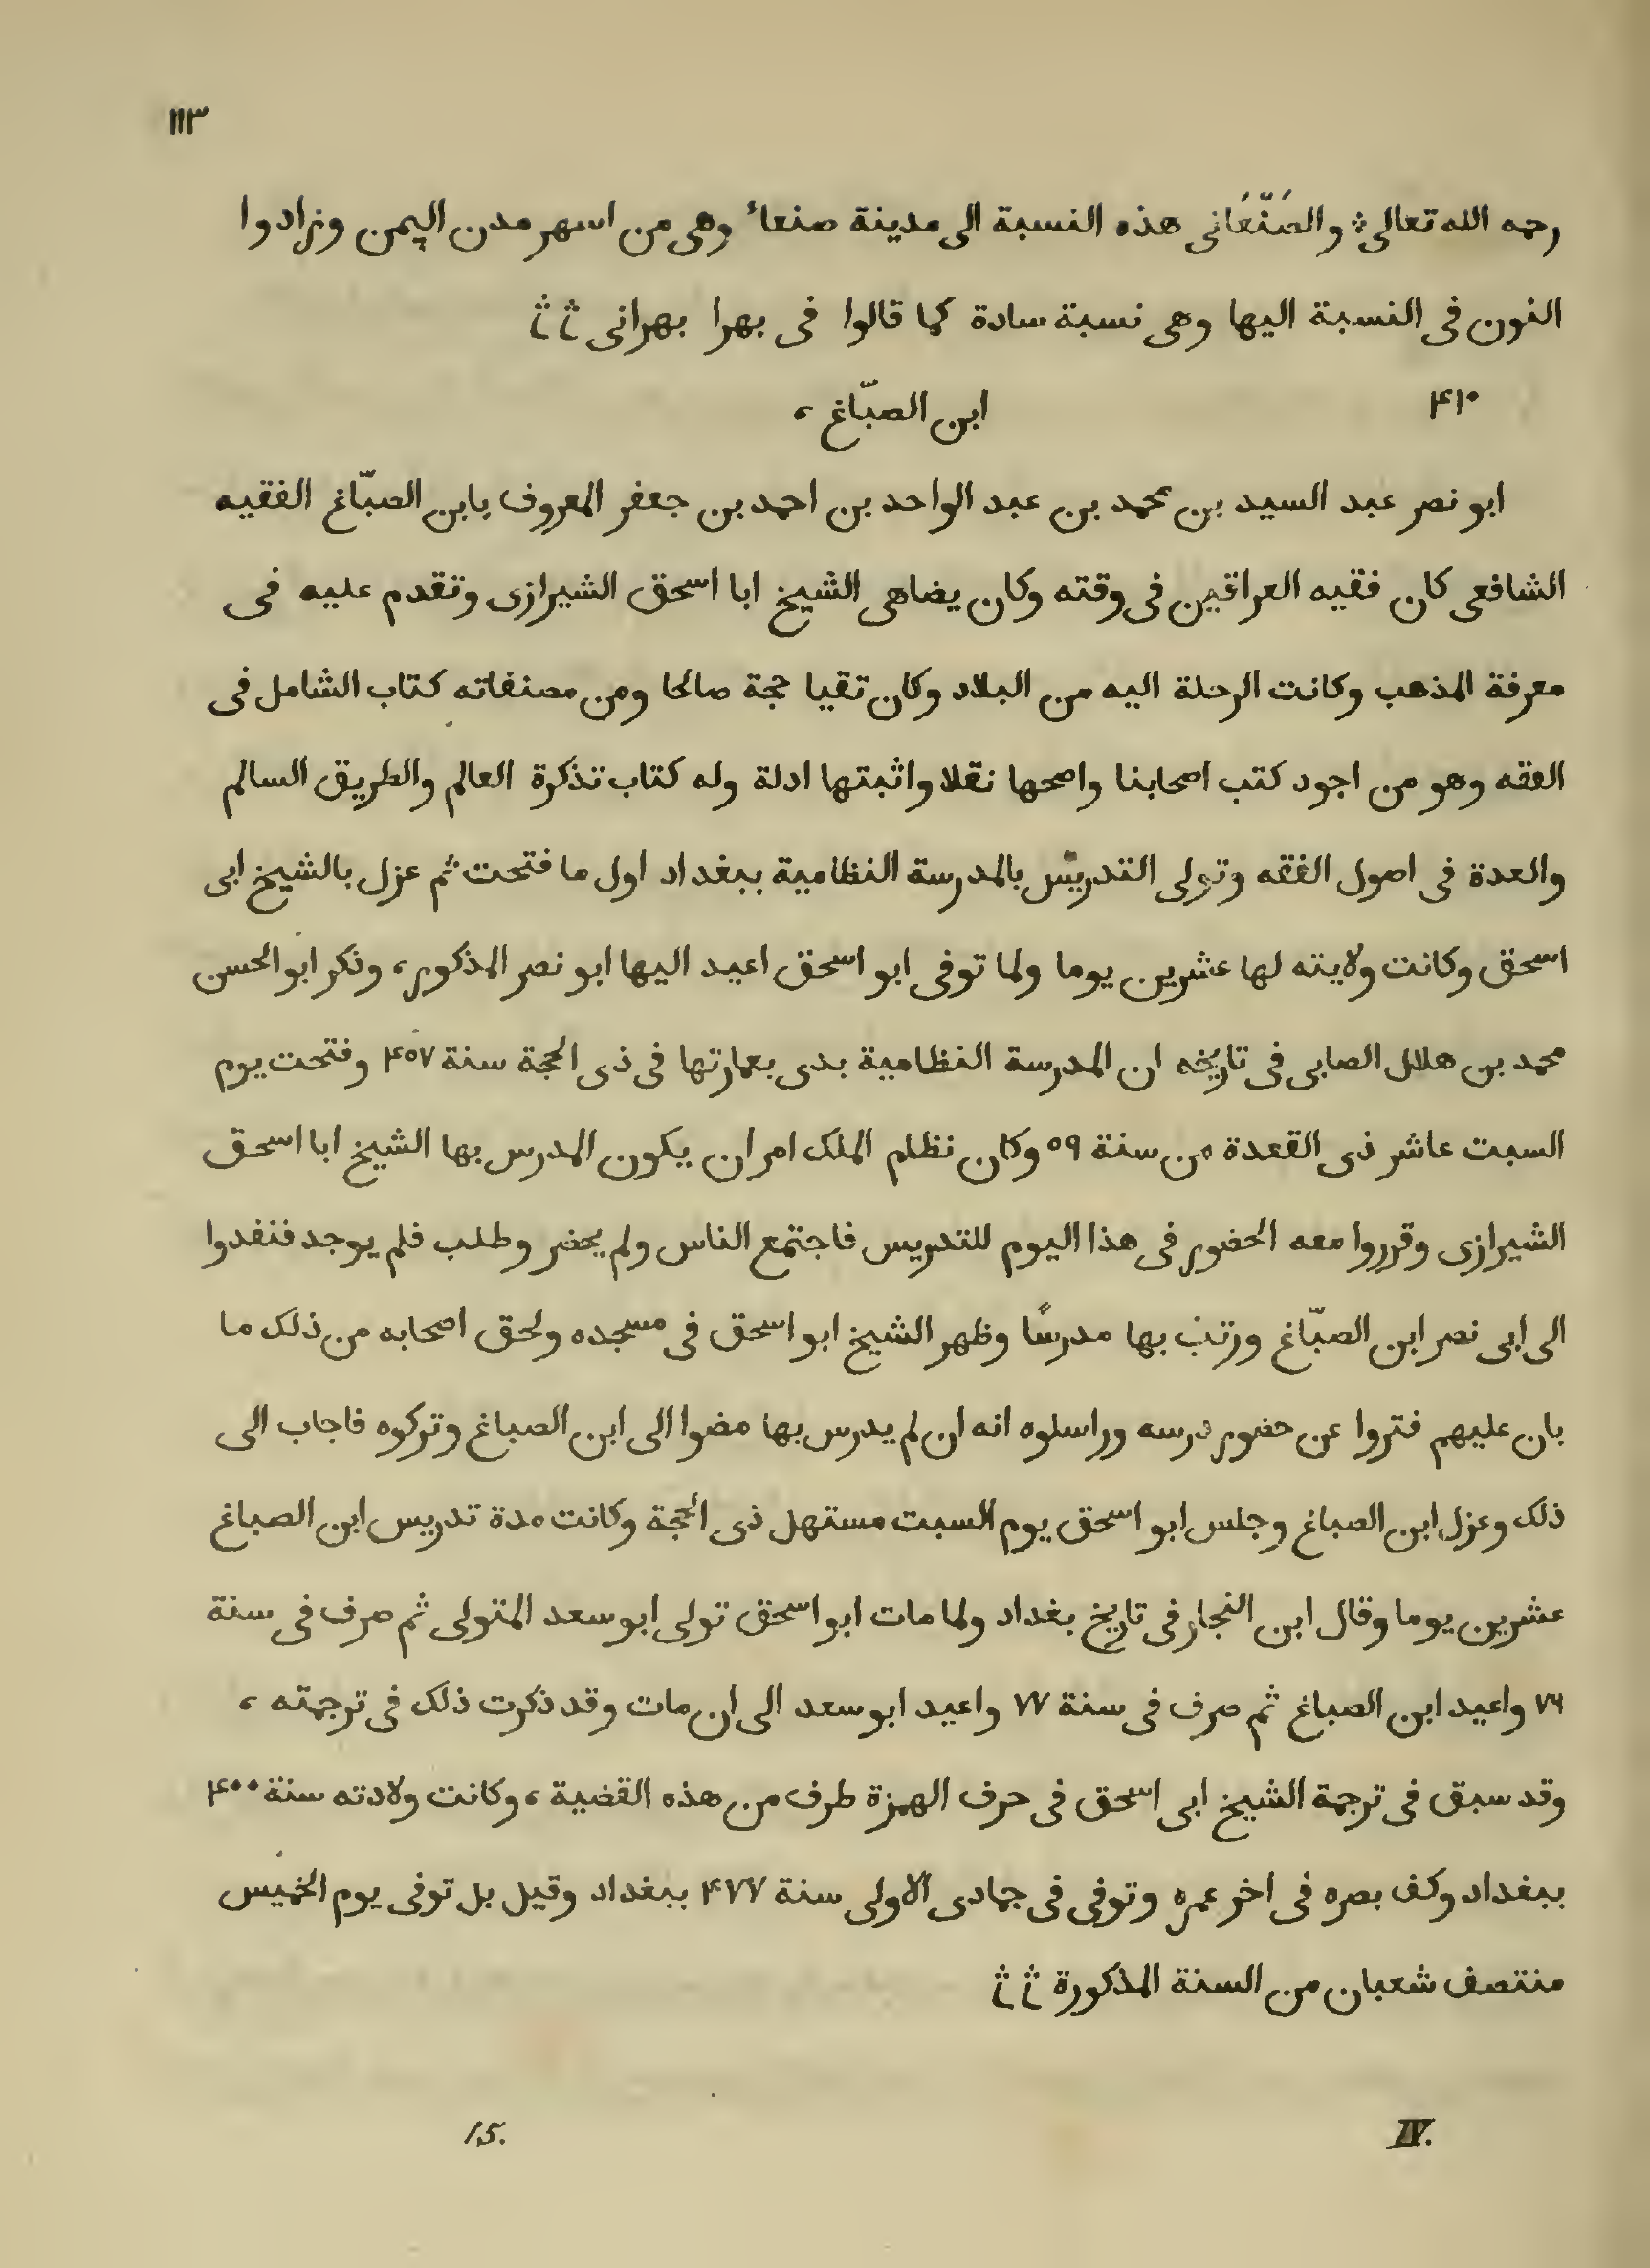 ١١٣
رحمه الله تعالى ؞ والصَنْعَانى هذه النسبة الى مدينة صنعاء وهى من اسهر مدن اليمن وزادوا
النون فى النسبة اليها وهى نسبة سادة كما قالوا فى بهرا بهرانى
٤١٠ ابن الصبّاغ ،
ابو نصر عبد السيد بن محمد بن عبد الواحد بن احمد بن جعفر المعروف بابن الصبّاغ الفقيه
الشافعى كان فقيه العراقين فى وقته وكان يضاهى الشيخ ابا اسحق الشيرازى وتقدم عليه فى
معرفة المذهب وكانت الرحلة اليه من البلاد وكان تقيا حجة صالحا ومن مصنفاته كتاب الشامل فى
الفقه وهو من اجود كتب اصحابنا واصحها نقلا واثبتها ادلة وله كتاب تذكرة العالم والطريق السالم
والعدة فى اصول الفقه وتولى التدريس بالمدرسة النظامية ببغداد اول ما فتحت ثم عزل بالشيخ ابى
اسحق وكانت ولايته لها عشرين يوما ولما توفى ابو اسحق اعيد اليها ابو نصر المذكور ، وذكر ابو الحسن
محمد بن هلال الصابى فى تاريخه ان المدرسة النظامية بدى بعمارتها فى ذى الحجة سنة ٤٥٧ وفتحت يوم
السبت عاشر ذى القعدة من سنة ٥٩ وكان نظام الملك امر ان يكون المدرس بها الشيخ ابا اسحق
الشيرازى وقرروا معه الحضور فى هذا اليوم للتدريس فاجتمع الناس ولم يحضر وطلب فلم يوجد فنفدوا
الى ابى نصر ابن الصبّاغ ورتب بها مدرسًا وظهر الشيخ ابو اسحق فى مسجده ولحق اصحابه من ذلك ما
بان عليهم فتروا عن حضور درسه وراسلوه انه ان لم يدرس بها مضوا الى ابن الصباغ وتركوه فاجاب الى
ذلك وعزل ابن الصباغ وجلس ابو اسحق يوم السبت مستهل ذى الحجة وكانت مدة تدريس ابن الصباغ
عشرين يوما وقال ابن النجار فى تاريخ بغداد ولما مات ابو اسحق تولى ابو سعد المتولى ثم صرف فى سنة
٧٦ واعيد ابن الصباغ ثم صرف فى سنة ٧٧ واعيد ابو سعد الى ان مات وقد ذكرت ذلك فى ترجمته ،
وقد سبق فى ترجمة الشيخ ابى اسحق فى حرف الهمزة طرف من هذه القضية ، وكانت ولادته سنة ٤٠٠
ببغداد وكف بصره فى اخر عمره وتوفى فى جمادى الاولى سنة ٤٧٧ ببغداد وقيل بل توفى يوم الخميس
منتصف شعبان من السنة المذكورة
IV. 15.